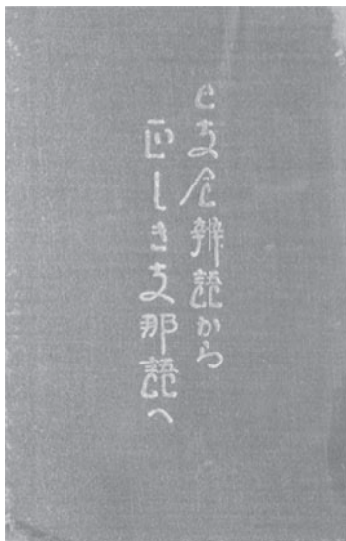 日支合辦語から
正しき支那語へ